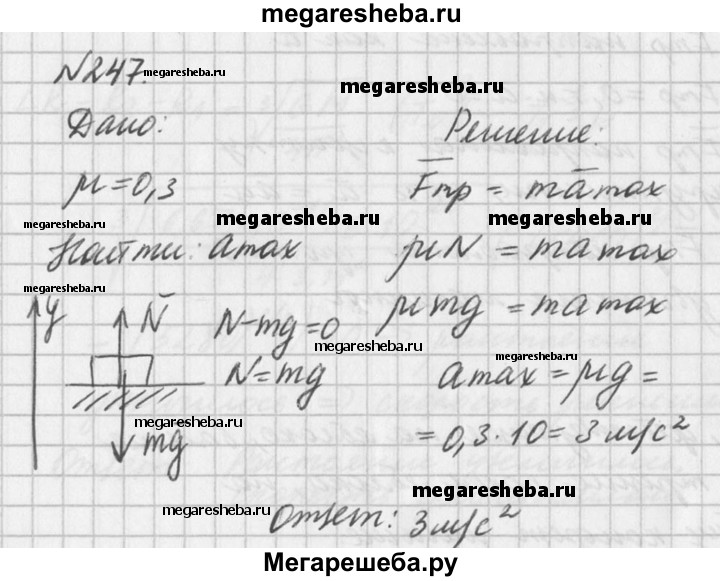 megaresheba.ru
N247. megaresheba.ru
megaresheba.ru
Дано: Решение:
μ=0,3 F̅тр = ma̅max
megaresheba.ru megaresheba.ru megaresheba.ru
Найти: amax μN = mamax
megaresheba.ru
y N̅ N-mg=0 μmg = mamax
megaresheba.ru
megaresheba.ru
N=mg amax = μg =
megaresheba.ru
mg = 0,3·10= 3 м/с²
megaresheba.ru
megaresheba.ru
Ответ: 3 м/с²
Мегарешеба.ру